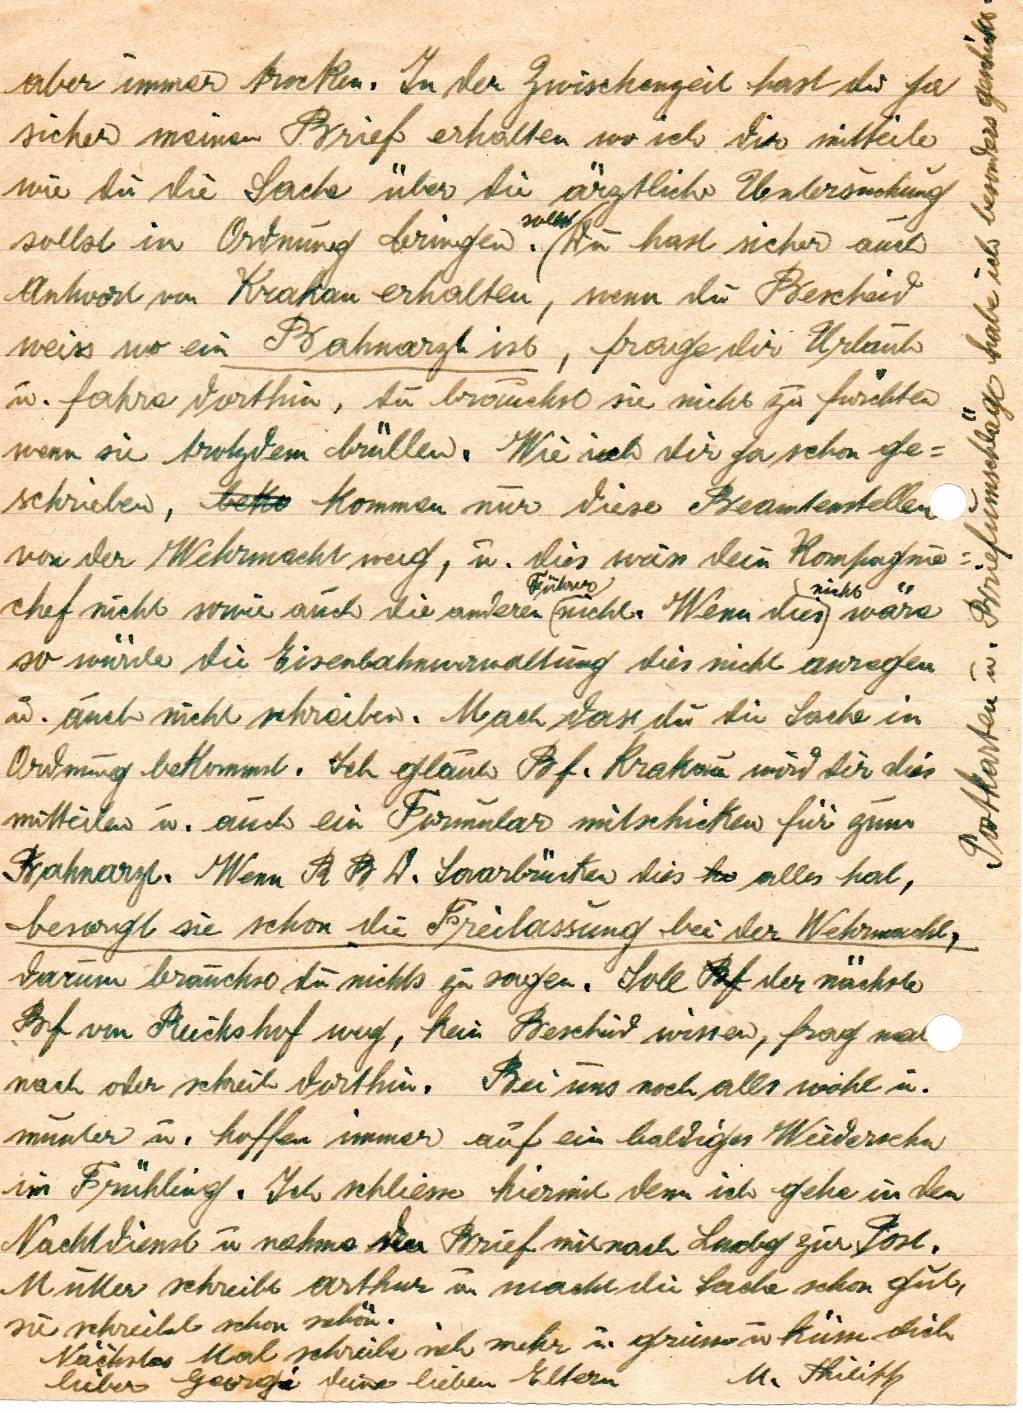 aber immer trocken. In der Zwischenzeit hast du ja
sicher meinen Brief erhalten wo ich dir mitteile
wie du die Sache über die ärztliche Untersuchung
sollst in Ordnung bringen. (sollst) Du hast sicher auch
Antwort von Krakau erhalten, wenn du Bescheid
weiss wo ein Bahnarzt ist, frage dir Urlaub
u. fahre dorthin, du brauchst sie nicht zu fürchten
wenn sie trotzdem brüllen. Wie ich dir ja schon ge=
schrieben, kommen nur diese Beamtenstellen
von der Wehrmacht weg, u. dies weiss dein Kompagnie=
chef nicht sowie auch die anderen (Führer) nicht. Wenn dies (nicht) wäre
so würde die Eisenbahnverwaltung dies nicht anregen
u. auch nicht schreiben. Mach dass du die Sache in
Ordnung bekommst. Ich glaube Bf. Krakau wird dir dies
mitteilen u. auch ein Formular mitschicken für zum
Bahnarzt. Wenn R B D. Saarbrücken dies alles hat,
besorgt sie schon die Freilassung bei der Wehrmacht,
darum brauchst du nichts zu sagen. Soll der nächste
Bf von Reichshof weg, kein Bescheid wissen, frag mal
nach oder schreib dorthin. Bei uns noch alls wohl u.
munter u. hoffen immer auf ein baldiges Wiedersehn
im Frühling. Ich schliesse hiermit denn ich gehe in den
Nachtdienst u nehme den Brief mit nach zur Post.
Mutter schreibt Arthur u macht die Sache schon gut,
sie schreibt schon schön.
Nächstes Mal schreibe ich mehr u. grüsse u küsse dich
lieber George deine lieben Eltern M. Philipp
Postkarten u. Briefumschläge habe ich besonders geschickt.